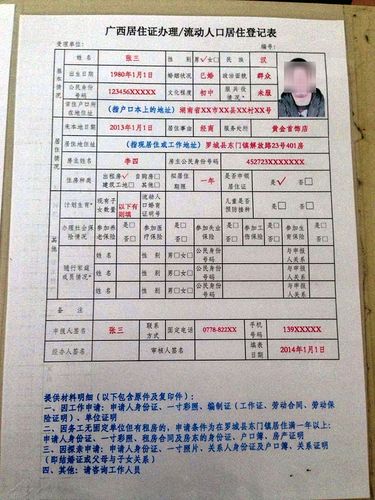 广西居住证办理/流动人口居住登记表
受理单位: 编号:
基本情况
姓名 张三 性别 男√女□ 民族 汉
出生日期 1980年1月1日 婚姻状况 已婚 政治面貌 群众
公民身份号码 123456XXXXX 文化程度 初中 服兵役情况* 未服
常住户口所在地住址 (指户口本上的地址)湖南省XX市XX县XX村XX号
居住情况
来本地日期 2013年1月1日 居住事由 经商 服务处所 黄金首饰店
居住地住址 (指现居住或工作地址)罗城县东门镇解放路23号401房
房主姓名 李四 房主公民身份号码 452723XXXXXXX
住房种类 出租房√ 自购房□ 建筑工地□ 其他□ 拟居住期限 一年 是否申领居住证 是√ 否□
其他
计划生育* 现有子女数量 以下有则填 流动人口婚育证明号 儿童是否预防接种 是□ 否□
办理社会保险情况 参加养老保险 是□ 否□ 参加医疗保险 是□ 否□ 参加失业保险 是□ 否□ 参加工伤保险 是□ 否□ 参加生育保险 是□ 否□
随行家庭成员情况*
姓名 性别 男□女□ 公民身份号码 与申报人关系
姓名 性别 男□女□ 公民身份号码 与申报人关系
姓名 性别 男□女□ 公民身份号码 与申报人关系
备注
申报人签名 张三 联系方式 固定电话 0778-822XX 手机号码 139XXXXX
经办人签名 审核人签名 填表日期 2014年1月1日
提供材料明细(以下包含原件及复印件):
一、因工作申请:申请人身份证、一寸彩照、编制证(工作证、劳动合同、劳动保险证明)、单位证明
二、因务工无固定单位但有租房的,申请条件为在罗城县东门镇居住满一年以上:
申请人身份证、一寸彩照、租房合同及房东的身份证、户口簿、房产证明
三、因探亲申请:申请人身份证、一寸照片、关系人身份证及户口簿、关系证明
(即结婚证或父母与子女关系)
四、其他:请咨询工作人员